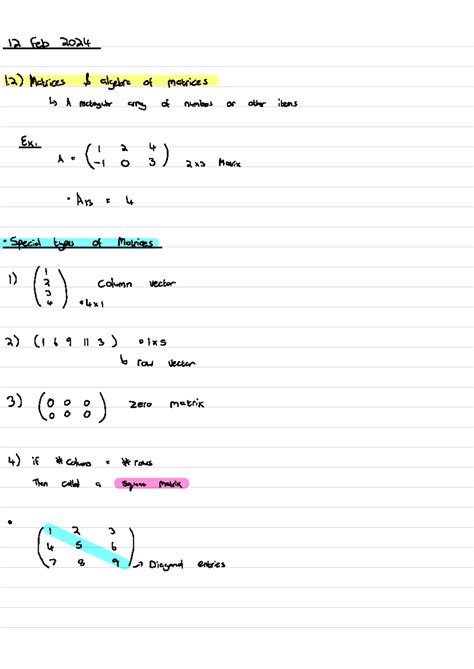 12 Feb 2024
1.2) Matrices & algebra of matrices
↳ A rectangular array of numbers or other items
Ex:
A = ( 1 2 4
-1 0 3 ) 2x3 Matrix
• A₁₃ = 4
• Special types of Matrices
1) ( 1
2
3
4 ) Column vector
• 4x1
2) ( 1 6 9 11 3 ) • 1x5
↳ row vector
3) ( 0 0 0
0 0 0 ) Zero matrix
4) if # columns = # rows
Then called a square matrix
•
( 1 2 3
4 5 6
7 8 9 ) → Diagonal entries